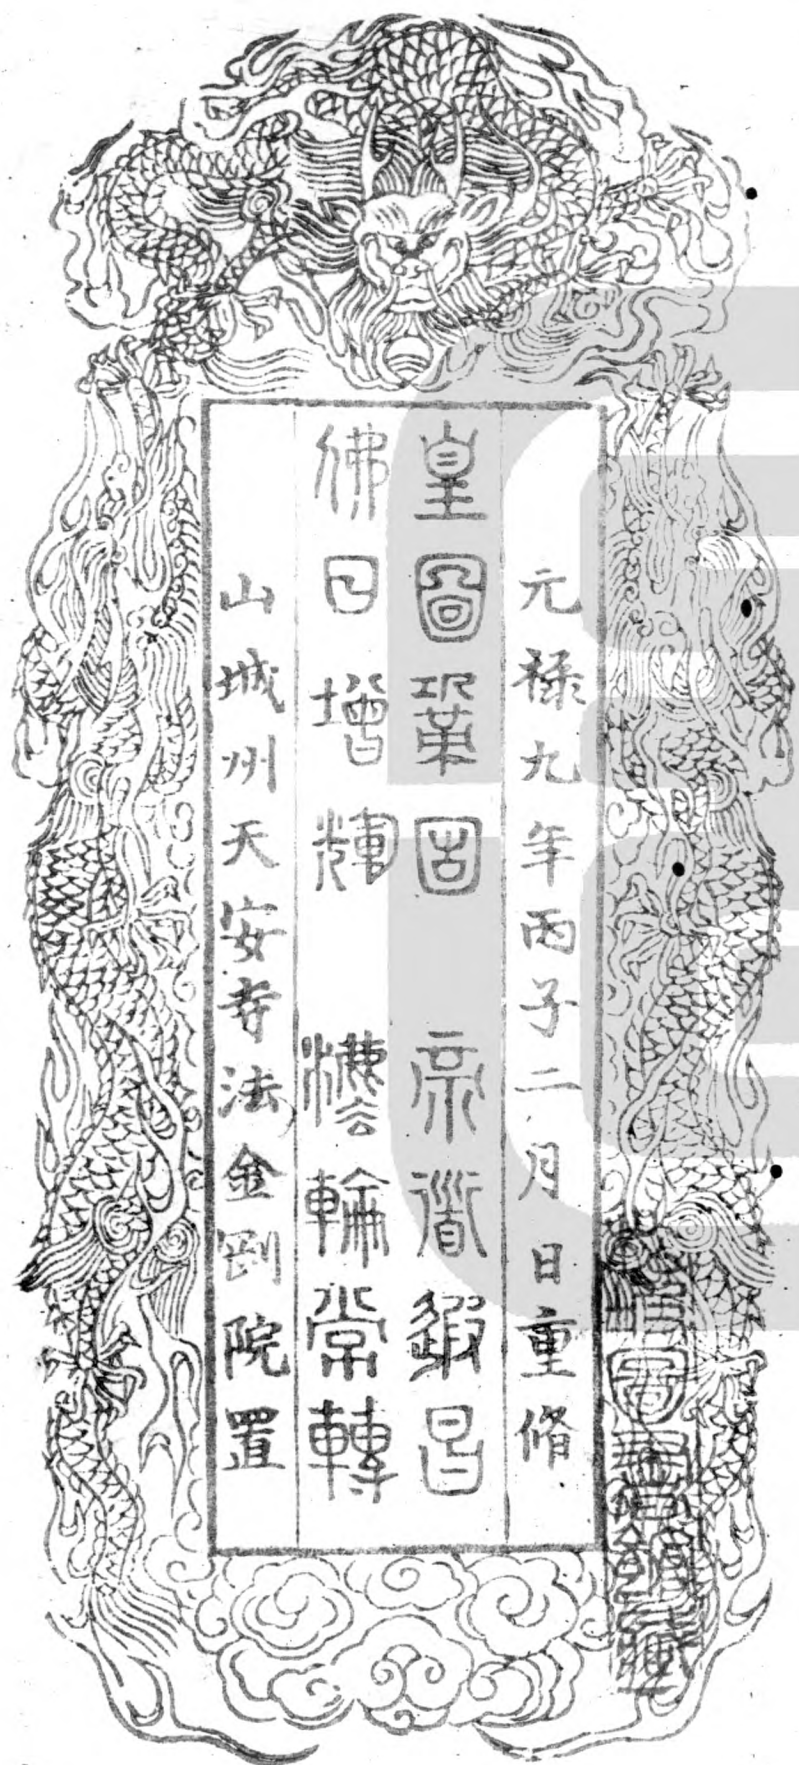 元禄九年丙子二月　日重脩
皇圖鞏固　帝道遐昌
佛日增輝　法輪常轉
山城州天安寺法金剛院置